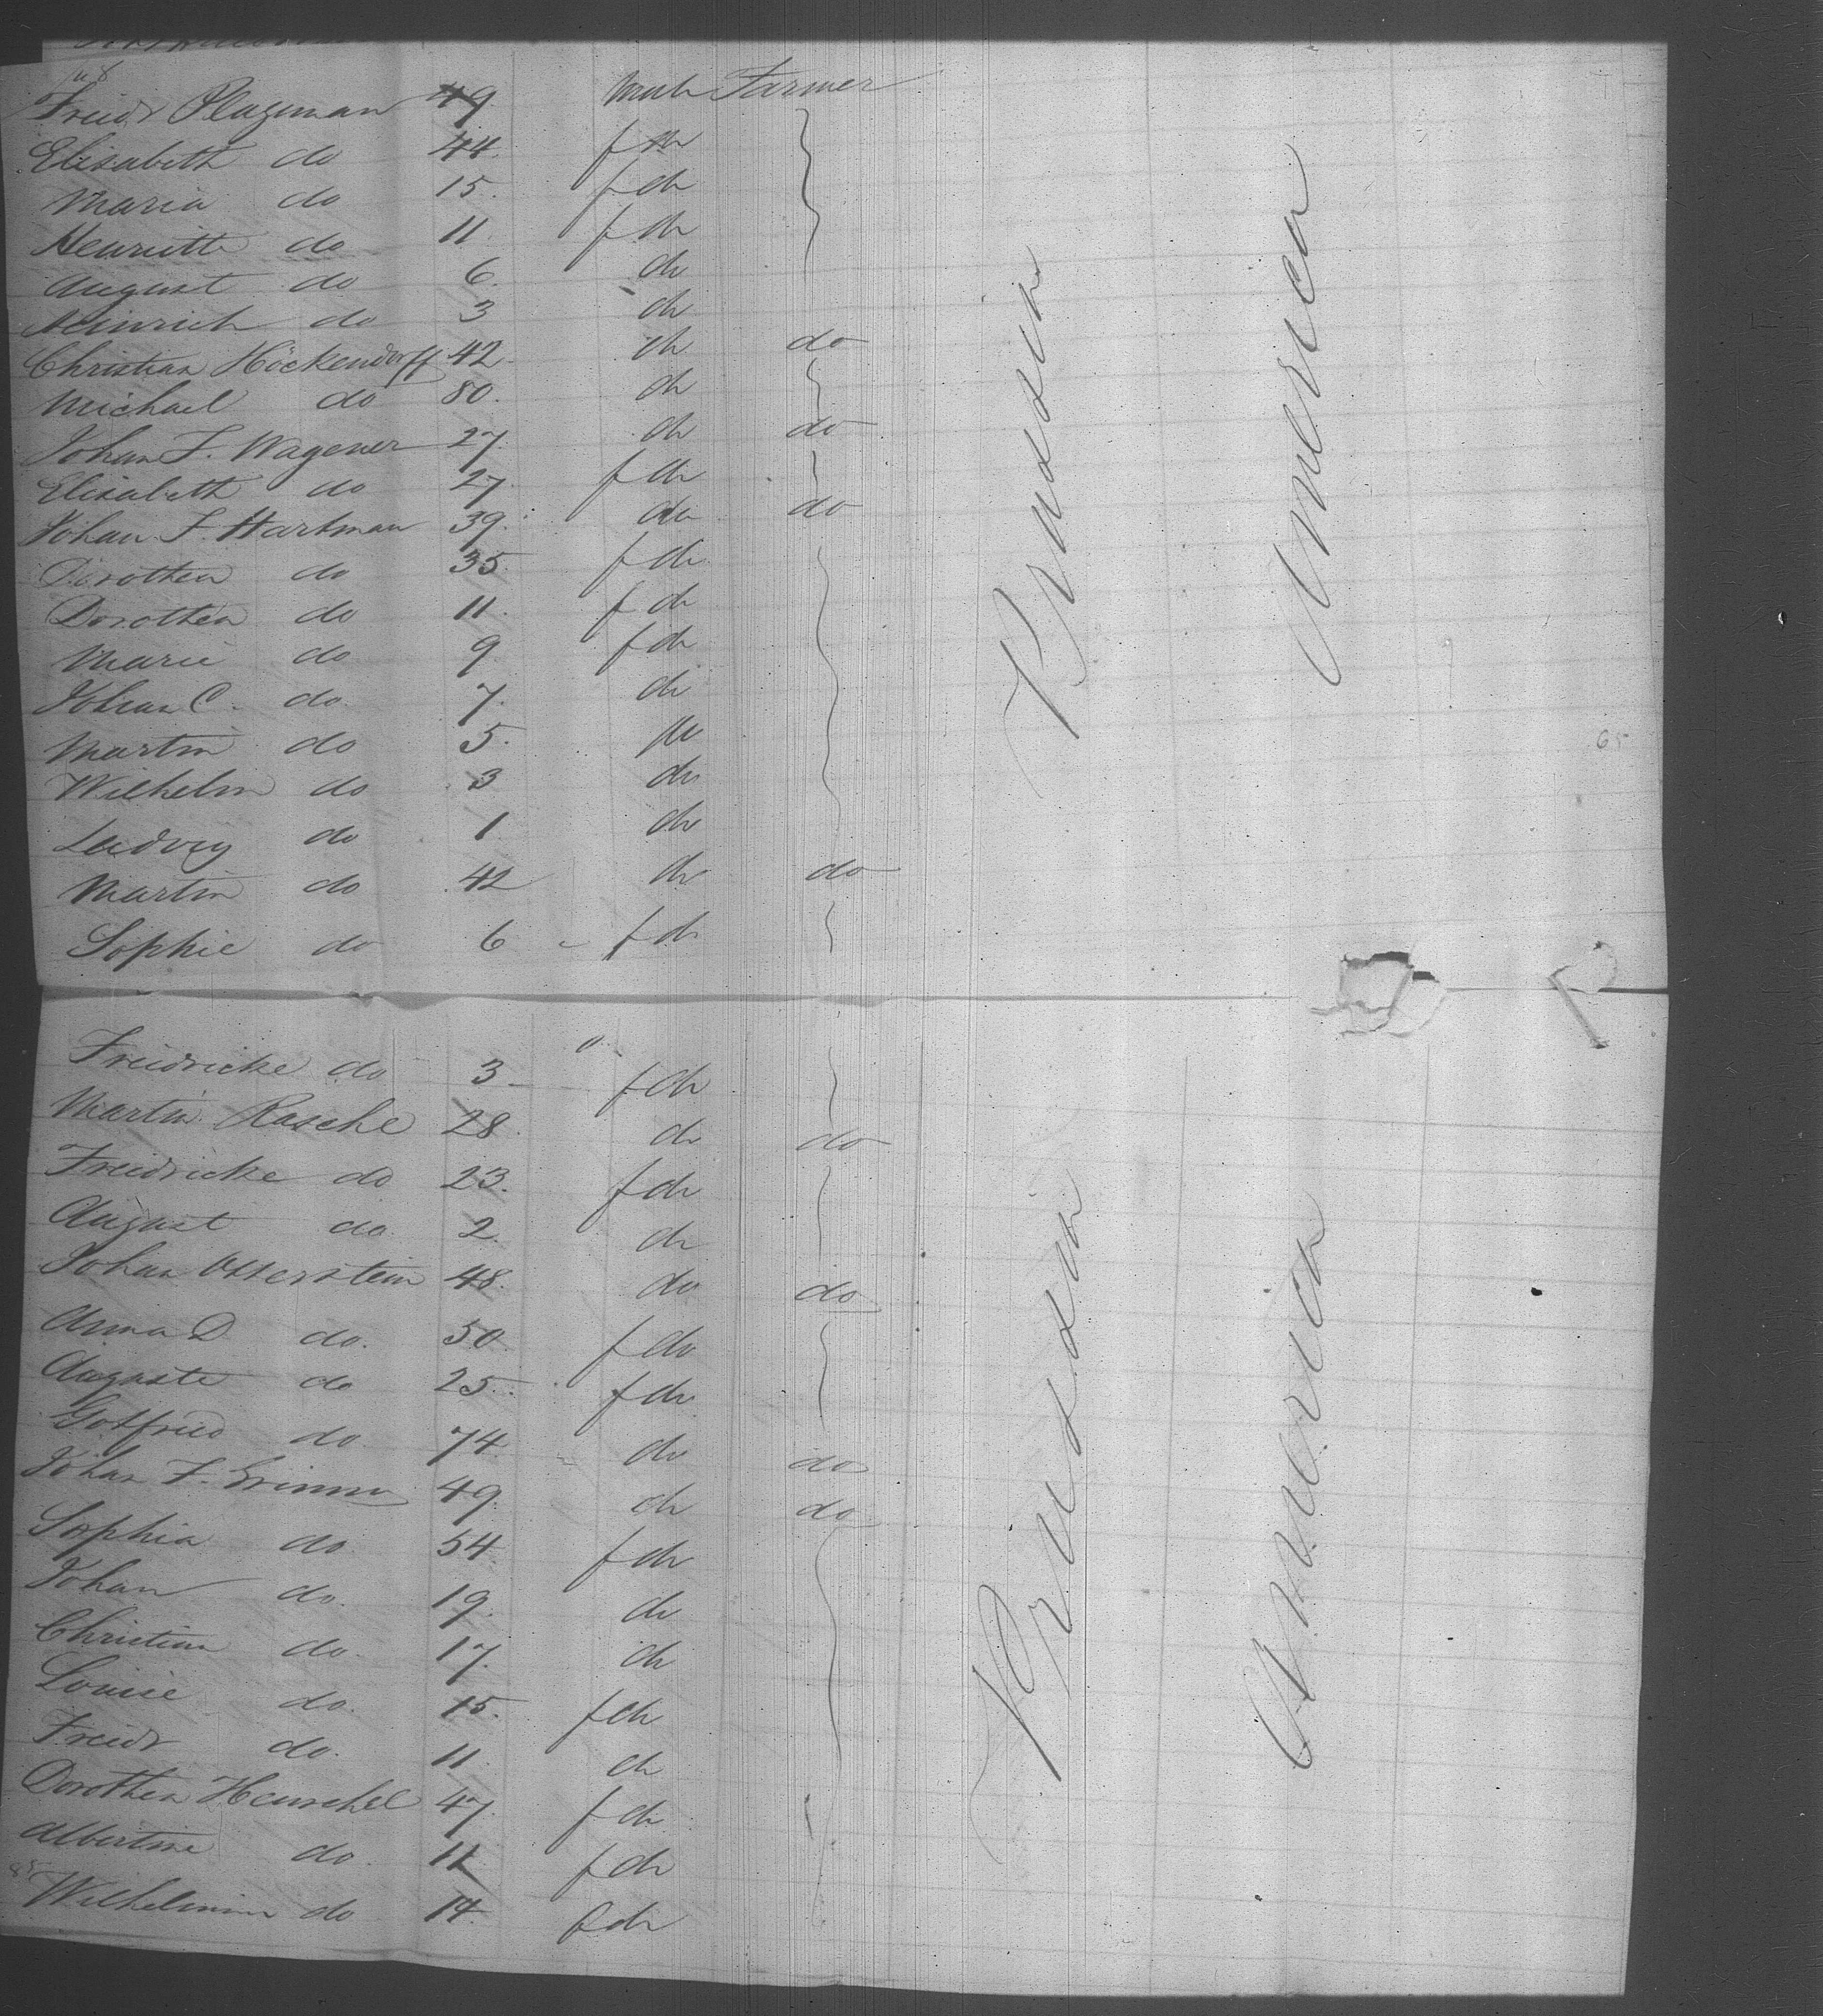 Freidr Plagman 49. male Farmer
Elisabeth do 44. f
Maria do 15. f do
Henriette do 11. f do
August do 6. do
Heinrich do 3 do
Christian Höckendorff 42 do do
Michael do 80. do
Johan F. Wagener 27. do do
Elisabeth do 27 f do
Johan F. Hartman 39. do do
Dorothea do 35. f do
Dorothea do 11. f do
Marie do 9 f do
Johan C. do. 7. do
Martin do 5.
Wilhelm do 3 do
Ludvig do 1 do
Martin do 42 do do
Sophie do 6 f do
Prussia
America
65
Freidricke do 3 f do
Martin Rasche 28. do do
Freidricke do 23. f do
August do. 2. do
Johan Otterstein 48. do do
Anna D do. 50. f do
Auguste do 25. f do
Gotfried do. 74 do do
Johan F. Grimm 49. do do
Sophia do. 54 f do
Johan do. 19. do
Christian do. 17. do
Louise do. 15. f do
Freidr do. 11. do
Dorothea Henschel 47. f do
Albertine do. 11 f do
Wilhelmine do 14. f do
Prussia
America